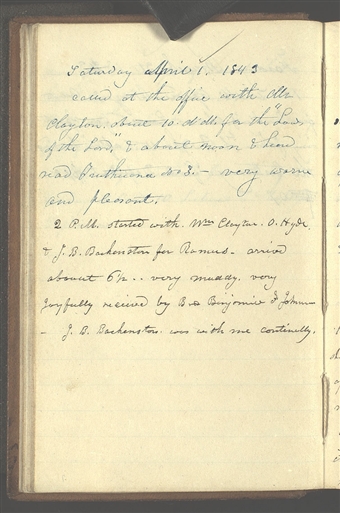 Saturday April 1. 1843
called at the office with Mr
Clayton. about 10. A M. for the "Law
of the Lord," & about noon & heard
read Truthiana No 3. - very warm
and pleasant.
2 P.M. started with Wm Clayton. O. Hyde,
& J. B. Backenstos for Ramus. arrived
about 6½ .. very muddy. very
joyfully recived by Bro Benjamin F Johnson
- J. B. Backenstos was with me continully.